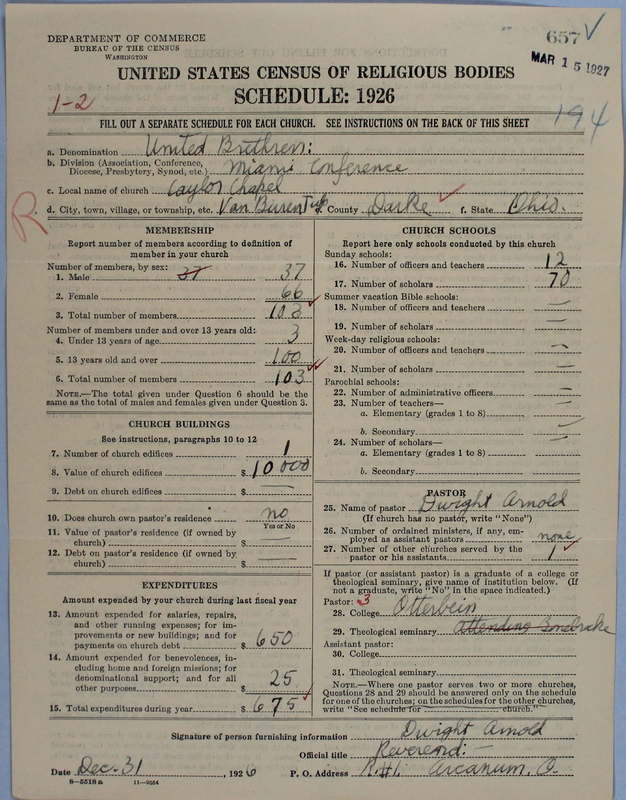 DEPARTMENT OF COMMERCE
BUREAU OF THE CENSUS
WASHINGTON
657 ✓
MAR 15 1927
UNITED STATES CENSUS OF RELIGIOUS BODIES
SCHEDULE: 1926
1-2
194
FILL OUT A SEPARATE SCHEDULE FOR EACH CHURCH. SEE INSTRUCTIONS ON THE BACK OF THIS SHEET
a. Denomination United Brethren:
b. Division (Association, Conference, Diocese, Presbytery, Synod, etc.) Miami Conference
c. Local name of church Caylor Chapel
d. City, town, village, or township, etc. Van Buren Twp County Darke f. State Ohio.
R
MEMBERSHIP
Report number of members according to definition of
member in your church
Number of members, by sex:
1. Male 37 37
2. Female 66
3. Total number of members 103
Number of members under and over 13 years old:
4. Under 13 years of age 3
5. 13 years old and over 100
6. Total number of members 103
NOTE.—The total given under Question 6 should be
same as the total of males and females given under Question 3.
CHURCH BUILDINGS
See instructions, paragraphs 10 to 12
7. Number of church edifices 1
8. Value of church edifices $ 10000
9. Debt on church edifices $ —
10. Does church own pastor's residence no
Yes or No
11. Value of pastor's residence (if owned by
church) $ —
12. Debt on pastor's residence (if owned by
church) $ —
EXPENDITURES
Amount expended by church during last fiscal year
13. Amount expended for salaries, repairs,
and other running expenses; for im-
provements or new buildings; and for
payments on church debt $ 650
14. Amount expended for benevolences, in-
cluding home and foreign missions; for
denominational support; and for all
other purposes $ 25
15. Total expenditures during year $ 675
CHURCH SCHOOLS
Report here only schools conducted by this church
Sunday schools:
16. Number of officers and teachers 12
17. Number of scholars 70
Summer vacation Bible schools:
18. Number of officers and teachers —
19. Number of scholars —
Week-day religious schools:
20. Number of officers and teachers —
21. Number of scholars —
Parochial schools:
22. Number of administrative officers —
23. Number of teachers—
a. Elementary (grades 1 to 8) —
b. Secondary —
24. Number of scholars—
a. Elementary (grades 1 to 8)
b. Secondary
PASTOR
25. Name of pastor Dwight Arnold
(If church has no pastor, write "None")
26. Number of ordained ministers, if any, em-
ployed as assistant pastors none
27. Number of other churches served by the
pastor or his assistants 1
If pastor (or assistant pastor) is a graduate of a college or
theological seminary, give name of institution below. (If
not a graduate, write "No" in the space indicated.)
Pastor: 3
28. College Otterbein
29. Theological seminary attending Bonebrake
Assistant pastor:
30. College
31. Theological seminary
NOTE.—Where one pastor serves two or more churches,
Questions 28 and 29 should be answered only on the schedule
for one of the churches; on the schedules for the other churches,
write "See schedule for church."
Signature of person furnishing information Dwight Arnold
Official title Reverend:
Date Dec. 31, 1926 P. O. Address R.#1. Arcanum, O.
8—5518a 11—9564